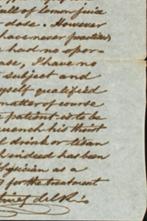 full of lemon juice
date. However
have never practised
had no opor-
ase, I have no
subject and
myself qualified
matter of course
patient is to be
quench his thirst
drink or tisan
indeed has been
physician as a
for the treatment